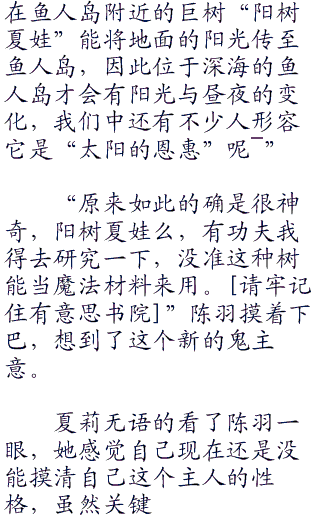 在鱼人岛附近的巨树“阳树
夏娃”能将地面的阳光传至
鱼人岛，因此位于深海的鱼
人岛才会有阳光与昼夜的变
化，我们中还有不少人形容
它是“太阳的恩惠”呢¯”
“原来如此的确是很神
奇，阳树夏娃么，有功夫我
得去研究一下，没准这种树
能当魔法材料来用。[请牢记
住有意思书院]”陈羽摸着下
巴，想到了这个新的鬼主
意。
夏莉无语的看了陈羽一
眼，她感觉自己现在还是没
能摸清自己这个主人的性
格，虽然关键